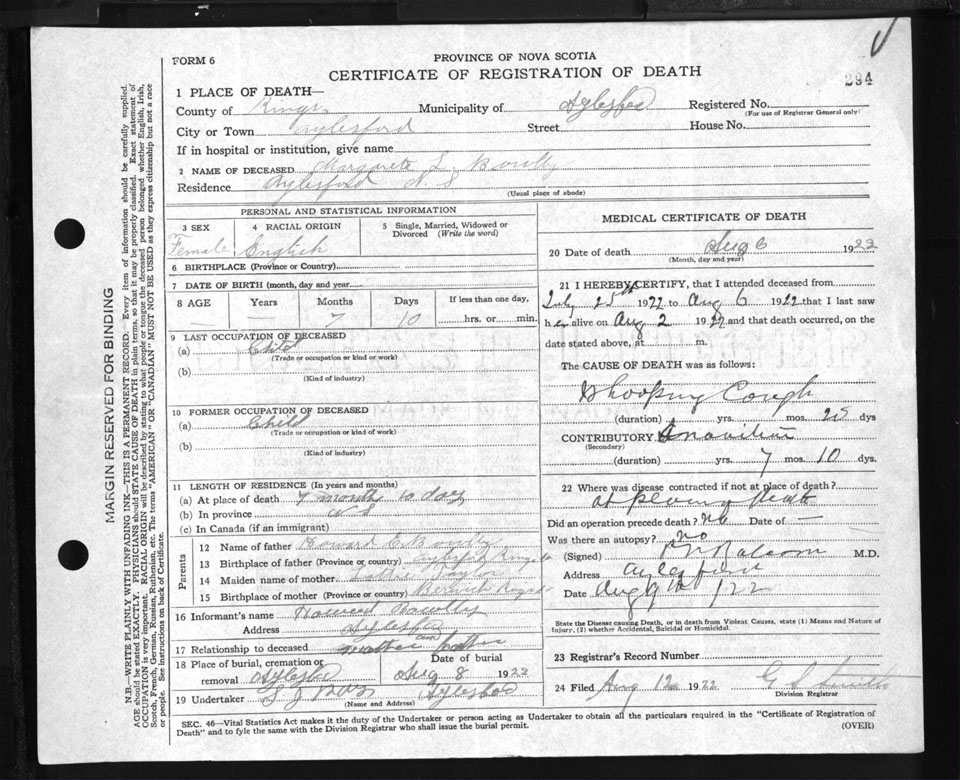 FORM 6
PROVINCE OF NOVA SCOTIA
CERTIFICATE OF REGISTRATION OF DEATH
294
1 PLACE OF DEATH—
County of Kings Municipality of Aylesford Registered No.
(For use of Registrar General only)
City or Town Aylesford Street House No.
If in hospital or institution, give name
2 NAME OF DECEASED L.
Residence Aylesford N S
(Usual place of abode)
PERSONAL AND STATISTICAL INFORMATION
3 SEX 4 RACIAL ORIGIN 5 Single, Married, Widowed or Divorced (Write the word)
Female English
6 BIRTHPLACE (Province or Country)
7 DATE OF BIRTH (month, day and year)
8 AGE Years Months Days If less than one day,
— — 7 10 hrs. or min.
9 LAST OCCUPATION OF DECEASED
(a) Child
(Trade or occupation or kind or work)
(b)
(Kind of industry)
10 FORMER OCCUPATION OF DECEASED
(a) Child
(Trade or occupation or kind of work)
(b)
(Kind of industry)
11 LENGTH OF RESIDENCE (In years and months)
(a) At place of death 7 months 10 days
(b) In province N S
(c) In Canada (if an immigrant)
Parents
12 Name of father Howard E.
13 Birthplace of father (Province or country)
14 Maiden name of mother Taylor
15 Birthplace of mother (Province or country) Berwick
16 Informant's name Howard
Address Aylesford
17 Relationship to deceased father
18 Place of burial, cremation or removal Aylesford Date of burial Aug 8 1922
19 Undertaker Aylesford
(Name and Address)
MEDICAL CERTIFICATE OF DEATH
20 Date of death Aug 6 1922
(Month, day and year)
21 I HEREBY CERTIFY, that I attended deceased from
July 25th 1922 to Aug 6 1922 that I last saw
her alive on Aug 2 1922 and that death occurred, on the
date stated above, at m.
The CAUSE OF DEATH was as follows:
Whooping Cough
(duration) yrs. mos. 25 dys
CONTRIBUTORY
(Secondary)
(duration) yrs. 7 mos. 10 dys.
22 Where was disease contracted if not at place of death?
at place of death
Did an operation precede death? No Date of —
Was there an autopsy? No
(Signed) M.D.
Address Aylesford
Date Aug 9th /22
State the Disease causing Death, or in death from Violent Causes, state (1) Means and Nature of
Injury, (2) whether Accidental, Suicidal or Homicidal.
23 Registrar's Record Number
24 Filed Aug 12 1922
Division Registrar
SEC. 46—Vital Statistics Act makes it the duty of the Undertaker or person acting as Undertaker to obtain all the particulars required in the "Certificate of Registration of
Death" and to fyle the same with the Division Registrar who shall issue the burial permit.
(OVER)
MARGIN RESERVED FOR BINDING
N.B.—WRITE PLAINLY WITH UNFADING INK—THIS IS A PERMANENT RECORD. Every item of information should be carefully supplied.
AGE should be stated EXACTLY. PHYSICIANS should STATE CAUSE OF DEATH in plain terms, so that it may be properly classified. Exact statement of
OCCUPATION is very important. RACIAL ORIGIN will be described by stating to what people or tongue the deceased person belonged whether English, Irish,
Scotch, French, German, Russian, Ruthenian, etc. The terms "AMERICAN" OR "CANADIAN" MUST NOT BE USED as they express citizenship but not a race
or people. See instructions on back of Certificate.